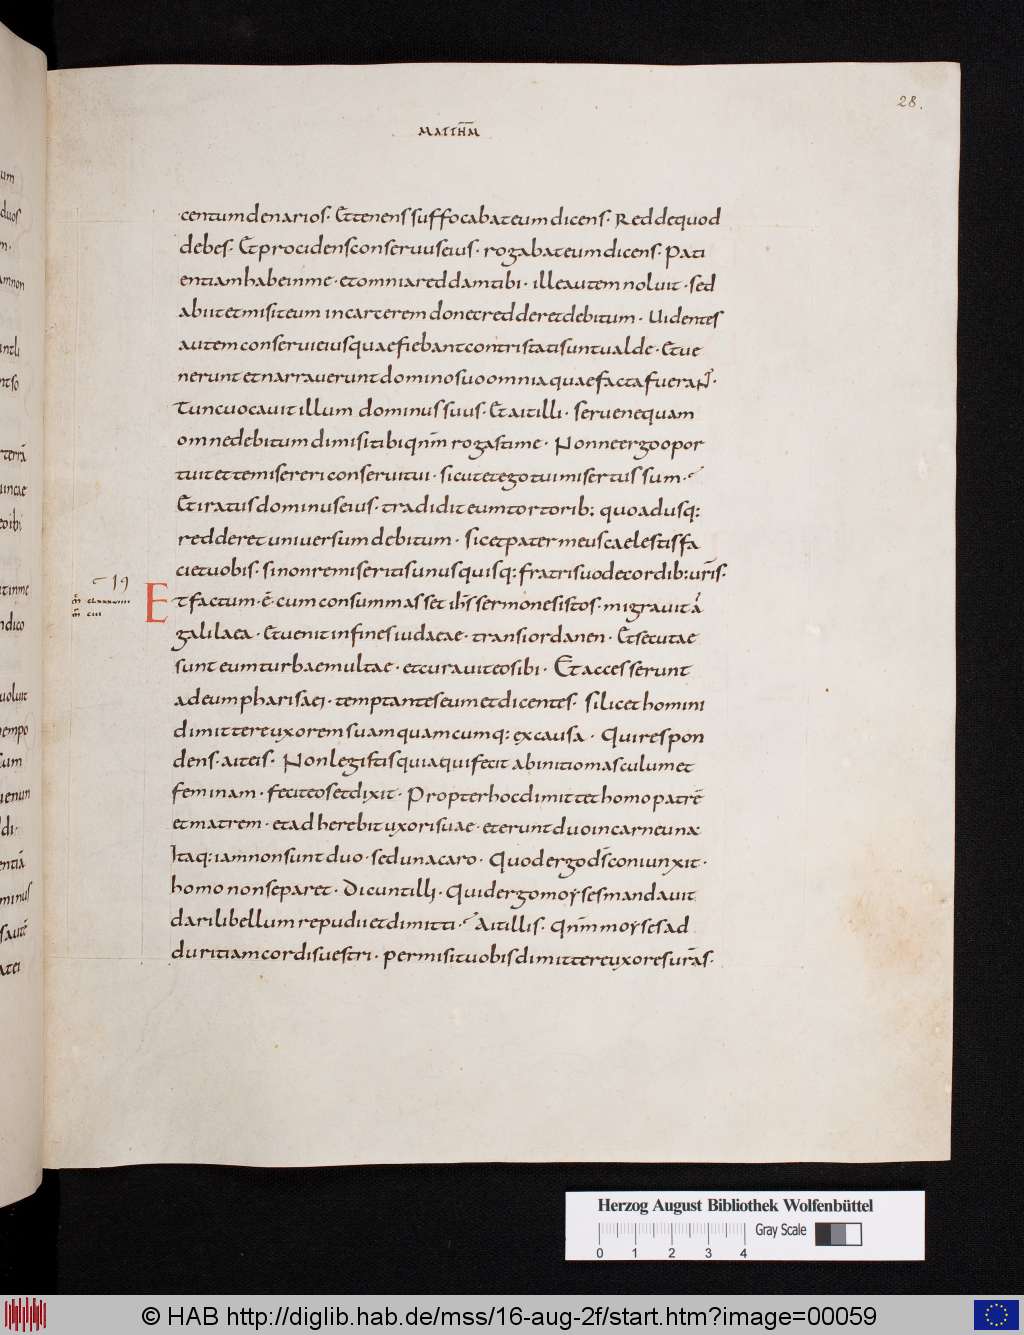 28.
MATTHM̅
centum denarios· Et tenens suffocabat eum dicens· Redde quod
debes· Et procidens conseruus eius· rogabat eum dicens· Pati
entiam habe in me· et omnia reddam tibi· ille autem noluit· sed
abiit et misit eum in carcerem donec redderet debitum· Uidentes
autem conserui eius quae fiebant contristati sunt ualde· Et ue
nerunt et narrauerunt domino suo omnia quae facta fuerant·
Tunc uocauit illum dominus suus· Et ait illi· serue nequam
omne debitum dimisi tibi qnm̅ rogasti me· Nonne ergo opor
tuit et te misereri conserui tui· sicut et ego tui misertus sum·
Et iratus dominus eius· tradidit eum tortorib; quo adusq;
redderet uniuersum debitum· sic et pater meus caelestis fa
ciet uobis· si non remiseritis unus quisq; fratri suo de cordib; ur̅is·
19
Et factum· ē· cum consummasset ih̅s sermones istos· migrauit á
galilaea· Et uenit in fines iudaeae· trans iordanen· Et secutae
sunt eum turbae multae· et curauit eos ibi· Et accesserunt
ad eum pharisaei· temptantes eum et dicentes· si licet homini
dimittere uxorem suam quam cumq; ex causa· Qui respon
dens· ait eis· Non legistis quia qui fecit ab initio masculum et
feminam· fecit eos et dixit· Propter hoc dimittet homo patrē
et matrem· et adherebit uxori suae· et erunt duo in carne una
Itaq; iam non sunt duo· sed una caro· Quod ergo d̅s coniunxit·
homo non separet· Dicunt illi· Quid ergo moyses mandauit
dari libellum repudii et dimitti· Ait illis· Qnm̅ moyses ad
duritiam cordis uestri· permisit uobis dimittere uxores ur̅as·
Herzog August Bibliothek Wolfenbüttel
Gray Scale
0 1 2 3 4
© HAB http://diglib.hab.de/mss/16-aug-2f/start.htm?image=00059